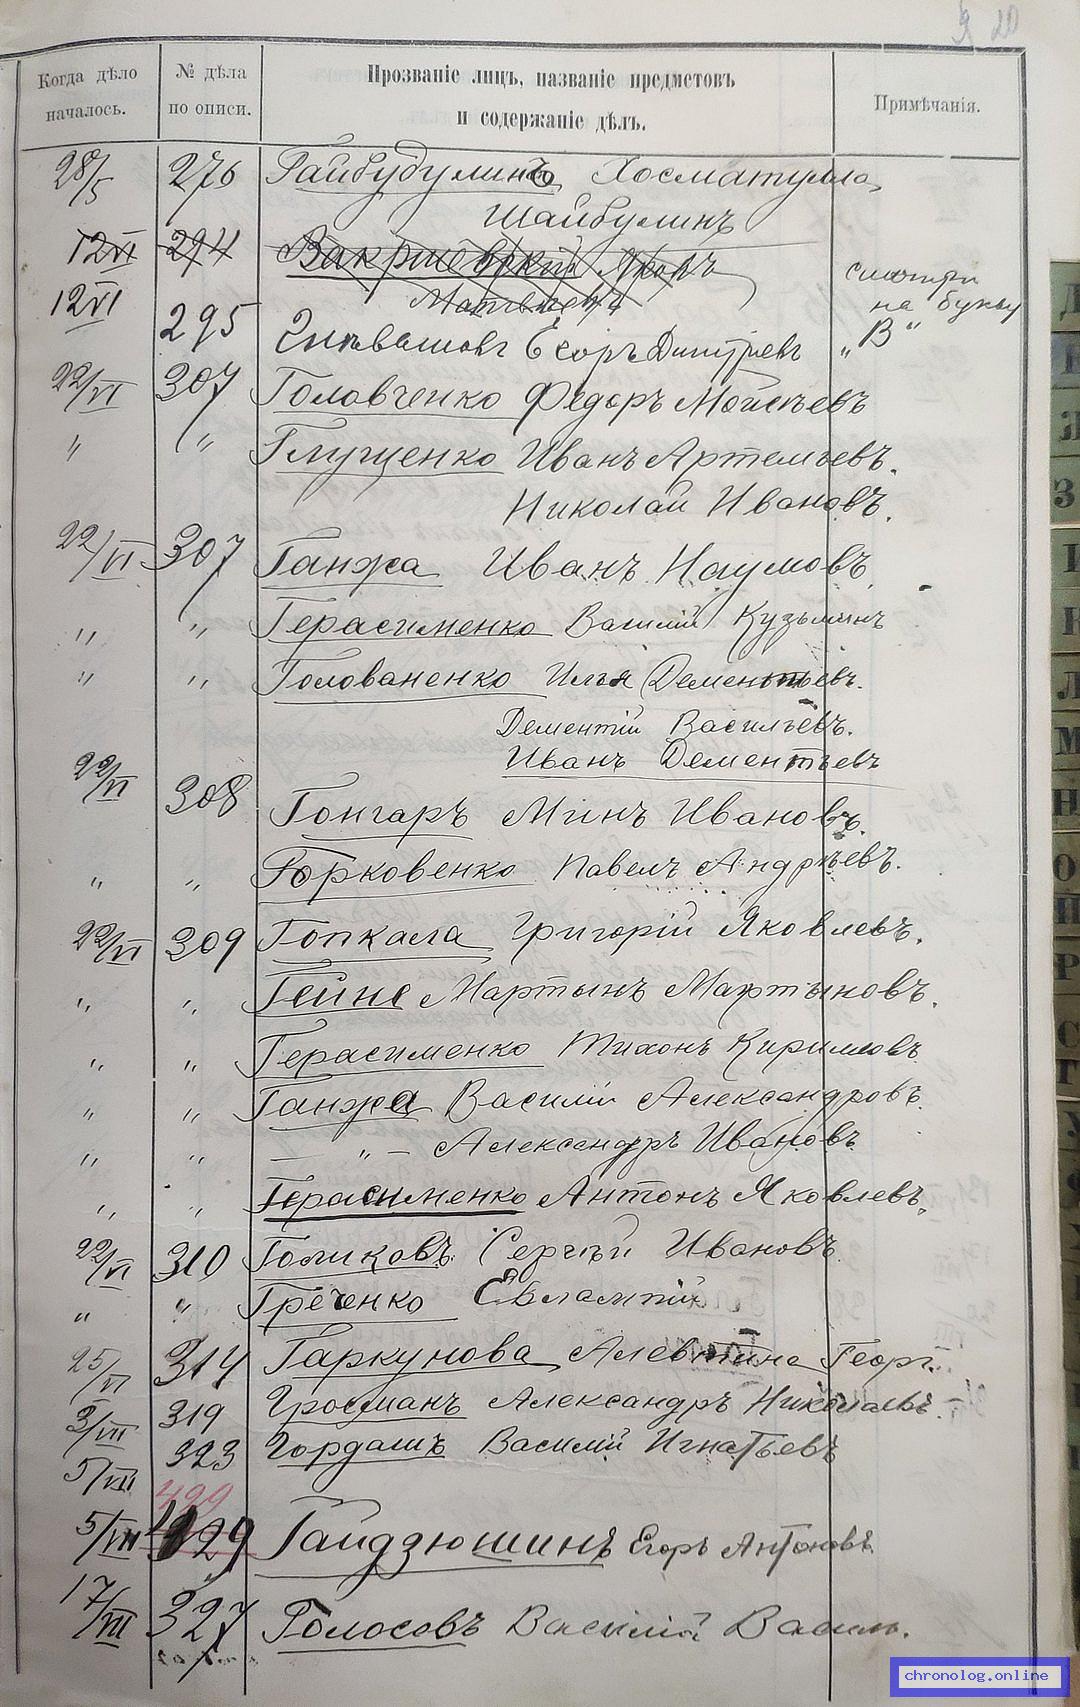 20
Когда дѣло началось.
№ дѣла по описи.
Прозваніе лицъ, названіе предметовъ и содержаніе дѣлъ.
Примѣчанія.
28/5 276 Гайбудулинъ Хосматулла
Шайбулинъ
12VI 294 Вакришевскій Яковъ
12VI
295 Егоръ Дмитріевъ
смотри
на букву
„В“
22/VI 307 Головченко Федоръ Мойсѣевъ
" " Глущенко Иванъ Артемьевъ.
Николай Ивановъ.
22/VI 307 Ганжа Иванъ Наумовъ
" " Герасименко Василій Кузьминъ
" " Голованенко Илья Дементьевъ.
Дементій Васильевъ.
Иванъ Дементьевъ
22/VI 308 Гонгаръ Минъ Ивановъ.
" " Горковенко Павелъ Андрѣевъ.
22/VI 309 Гопкала Григорій Яковлевъ.
" " Гейне Мартынъ Мартыновъ.
" " Герасименко Тихонъ Кирилловъ
" " Ганжа Василій Александровъ.
" " — " — Александръ Ивановъ
" " Герасименко Антонъ Яковлевъ.
22/VI 310 Голиковъ Сергѣй Ивановъ
" " Греченко Евлампій
25/VI 314 Гаркунова Алевтина Георг.
3/VII 319 Гросманъ Александръ
5/VII 323 Гордашъ Василій Игнатьевъ
429
5/VII 29 Гайдзюшинъ Егоръ Антоновъ
17/VII 327 Голосовъ Василій Василь.
chronolog.online